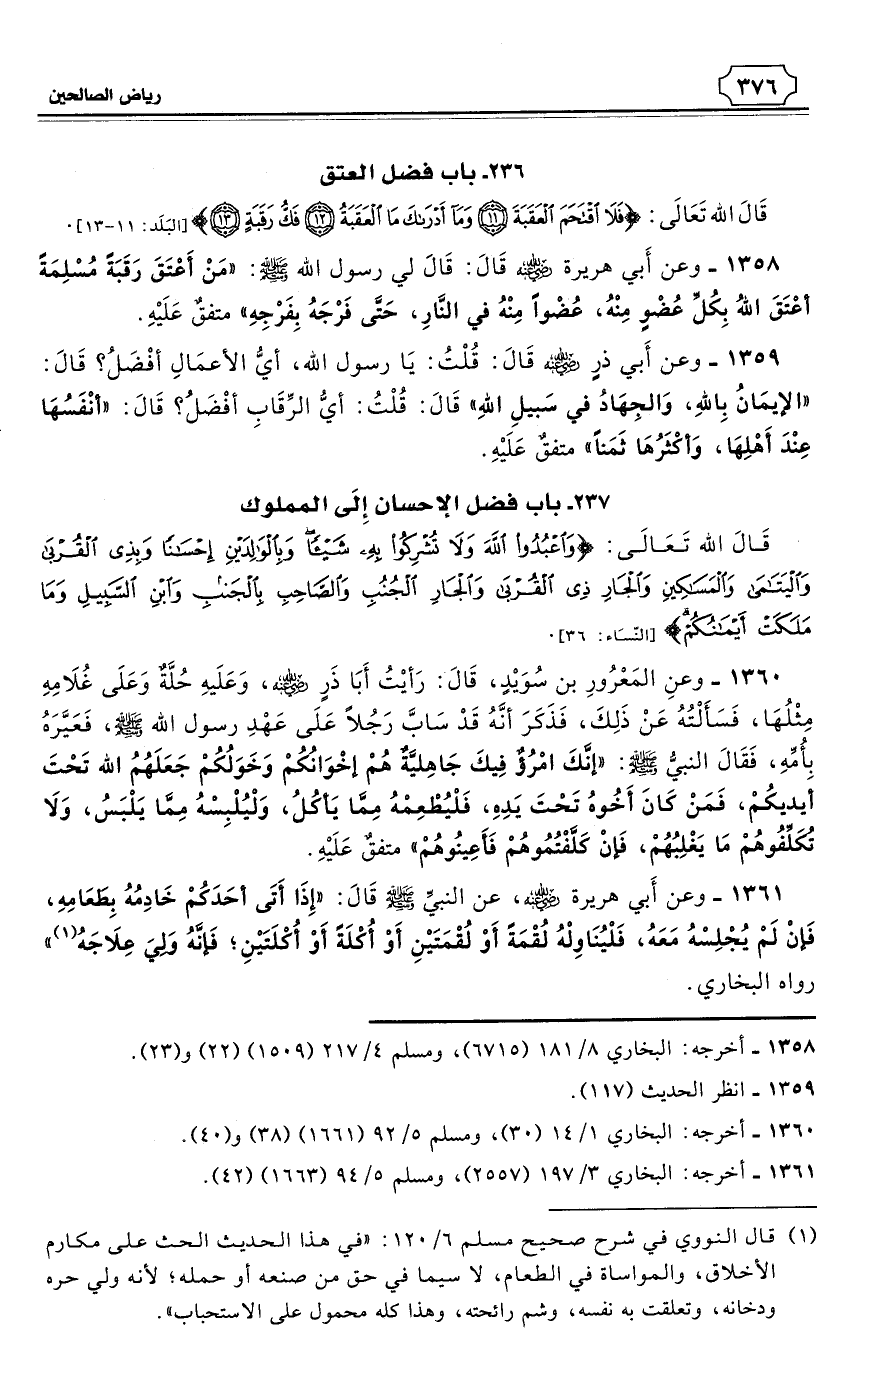 ٣٧٦
رياض الصالحين
٢٣٦ـ باب فضل العتق
قَالَ الله تَعَالَى: ﴿فَلَا ٱقْتَحَمَ ٱلْعَقَبَةَ ۝١١ وَمَآ أَدْرَىٰكَ مَا ٱلْعَقَبَةُ ۝١٢ فَكُّ رَقَبَةٍ ۝١٣﴾ [البَلَد: ١١-١٣].
١٣٥٨ ـ وعن أَبي هريرة رضي الله عنه قَالَ: قَالَ لي رسول الله ﷺ: «مَنْ أَعْتَقَ رَقَبَةً مُسْلِمَةً
أعْتَقَ اللهُ بِكُلِّ عُضْوٍ مِنْهُ، عُضْواً مِنْهُ في النَّارِ، حَتَّى فَرْجَهُ بِفَرْجِهِ» متفقٌ عَلَيْهِ.
١٣٥٩ ـ وعن أَبي ذرٍ رضي الله عنه قَالَ: قُلْتُ: يَا رسول الله، أيُّ الأعمَالِ أفْضَلُ؟ قَالَ:
«الإيمَانُ بِاللهِ، وَالجِهَادُ في سَبيلِ اللهِ» قَالَ: قُلْتُ: أيُّ الرِّقَابِ أفْضَلُ؟ قَالَ: «أنْفَسُهَا
عِنْدَ أهْلِهَا، وَأكْثَرُهَا ثَمَناً» متفقٌ عَلَيْهِ.
٢٣٧ـ باب فضل الإحسان إِلَى المملوك
قَالَ الله تَعَالَى: ﴿وَٱعْبُدُوا۟ ٱللَّهَ وَلَا تُشْرِكُوا۟ بِهِۦ شَيْـًٔا ۖ وَبِٱلْوَٰلِدَيْنِ إِحْسَـٰنًا وَبِذِى ٱلْقُرْبَىٰ
وَٱلْيَتَـٰمَىٰ وَٱلْمَسَـٰكِينِ وَٱلْجَارِ ذِى ٱلْقُرْبَىٰ وَٱلْجَارِ ٱلْجُنُبِ وَٱلصَّاحِبِ بِٱلْجَنۢبِ وَٱبْنِ ٱلسَّبِيلِ وَمَا
مَلَكَتْ أَيْمَـٰنُكُمْ ۗ﴾ [النِّسَاء: ٣٦].
١٣٦٠ ـ وعنِ المَعْرُورِ بن سُوَيْدٍ، قَالَ: رَأيْتُ أَبَا ذَرٍ رضي الله عنه، وَعَلَيهِ حُلَّةٌ وَعَلَى غُلَامِهِ
مِثْلُهَا، فَسَألْتُهُ عَنْ ذلِكَ، فَذَكَرَ أنَّهُ قَدْ سَابَّ رَجُلاً عَلَى عَهْدِ رسول الله ﷺ، فَعَيَّرَهُ
بِأُمِّهِ، فَقَالَ النبيُّ ﷺ: «إنَّكَ امْرُؤٌ فِيكَ جَاهِليَّةٌ هُمْ إخْوَانُكُمْ وَخَوَلُكُمْ جَعَلَهُمُ الله تَحْتَ
أيديكُمْ، فَمَنْ كَانَ أَخُوهُ تَحْتَ يَدِهِ، فَلْيُطْعِمْهُ مِمَّا يَأكُلُ، وَلْيُلْبِسْهُ مِمَّا يَلْبَسُ، وَلَا
تُكَلِّفُوهُمْ مَا يَغْلِبُهُمْ، فَإنْ كَلَّفْتُمُوهُمْ فَأَعِينُوهُمْ» متفقٌ عَلَيْهِ.
١٣٦١ ـ وعن أَبي هريرة رضي الله عنه، عن النبيِّ ﷺ قَالَ: «إِذَا أَتَى أحَدَكُمْ خَادِمُهُ بِطَعَامِهِ،
فَإنْ لَمْ يُجْلِسْهُ مَعَهُ، فَلْيُنَاوِلْهُ لُقْمَةً أَوْ لُقْمَتَيْنِ أَوْ أُكْلَةً أَوْ أُكْلَتَيْنِ؛ فَإنَّهُ وَلِيَ عِلَاجَهُ(١)»
رواه البخاري.
١٣٥٨ ـ أخرجه: البخاري ٨/ ١٨١ (٦٧١٥)، ومسلم ٤/ ٢١٧ (١٥٠٩) (٢٢) و(٢٣).
١٣٥٩ ـ انظر الحديث (١١٧).
١٣٦٠ ـ أخرجه: البخاري ١/ ١٤ (٣٠)، ومسلم ٥/ ٩٢ (١٦٦١) (٣٨) و(٤٠).
١٣٦١ ـ أخرجه: البخاري ٣/ ١٩٧ (٢٥٥٧)، ومسلم ٥/ ٩٤ (١٦٦٣) (٤٢).
(١) قال النووي في شرح صحيح مسلم ٦/ ١٢٠: «في هذا الحديث الحث على مكارم
الأخلاق، والمواساة في الطعام، لا سيما في حق من صنعه أو حمله؛ لأنه ولي حره
ودخانه، وتعلقت به نفسه، وشم رائحته، وهذا كله محمول على الاستحباب».